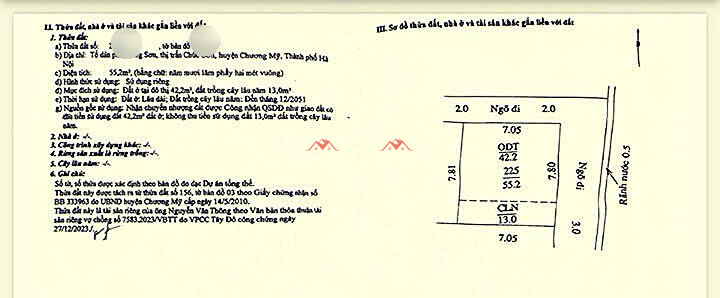 II. Thửa đất, nhà ở và tài sản khác gắn liền với đất
1. Thửa đất:
a) Thửa đất số: , tờ bản đồ
b) Địa chỉ: Tổ dân Sơn, thị trấn Chúc huyện Chương Mỹ, Thành phố Hà
Nội
c) Diện tích: 55,2m², (bằng chữ: năm mươi lăm phẩy hai mét vuông)
d) Hình thức sử dụng: Sử dụng riêng
đ) Mục đích sử dụng: Đất ở tại đô thị 42,2m², đất trồng cây lâu năm 13,0m²
e) Thời hạn sử dụng: Đất ở: Lâu dài; Đất trồng cây lâu năm: Đến tháng 12/2051
g) Nguồn gốc sử dụng: Nhận chuyển nhượng đất được Công nhận QSDĐ như giao đất có
thu tiền sử dụng đất 42,2m² đất ở; không thu tiền sử dụng đất 13,0m² đất trồng cây lâu
năm.
2. Nhà ở: -/-.
3. Công trình xây dựng khác: -/-.
4. Rừng sản xuất là rừng trồng: -/-.
5. Cây lâu năm: -/-.
6. Ghi chú:
Số tờ, số thửa được xác định theo bản đồ đo đạc Dự án tổng thể.
Thửa đất này được tách ra từ thửa đất số 156, tờ bản đồ 03 theo Giấy chứng nhận số
BB 333963 do UBND huyện Chương Mỹ cấp ngày 14/5/2010.
Thửa đất này là tài sản riêng của ông Nguyễn Văn Thông theo Văn bản thỏa thuận tài
sản riêng vợ chồng số 7583.2023/VBTT do VPCC Tây Đô công chứng ngày
27/12/2023./.
III. Sơ đồ thửa đất, nhà ở và tài sản khác gắn liền với đất
2.0 Ngõ đi 2.0
7.05
ODT
42.2
7.81
225
55.2
7.80
Ngõ đi
3.0
Rãnh nước 0.5
CLN
13.0
7.05